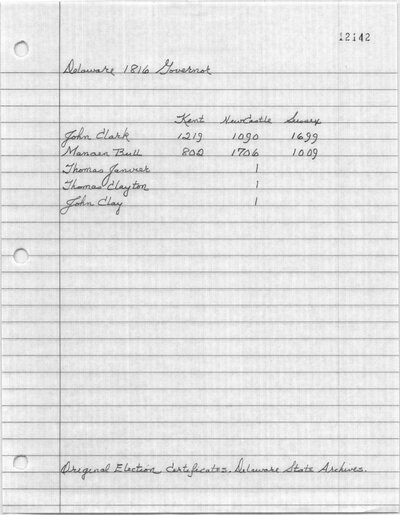 12142
Delaware 1816 Governor
Kent NewCastle Sussex
John Clark 1219 1090 1699
Manaen Bull 802 1706 1009
Thomas Janvier 1
Thomas Clayton 1
John Clay 1
Original Election Certificates. Delaware State Archives.